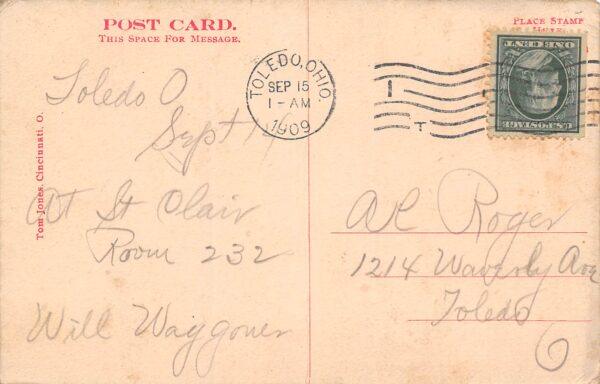 POST CARD.
THIS SPACE FOR MESSAGE.
PLACE STAMP
HERE
TOLEDO, OHIO.
SEP 15
1-AM
1909
I
T
U.S. POSTAGE
ONE CENT
Tom Jones, Cincinnati, O.
Toledo O
Sept 14
At St Clair
Room 232
Will Waggoner
A R Roger
1214 Waverly Ave
Toledo
O